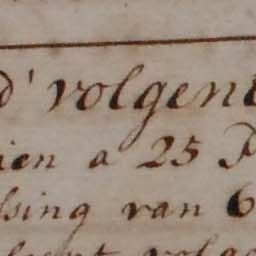 d' volgen
ien a 25
sing van 6